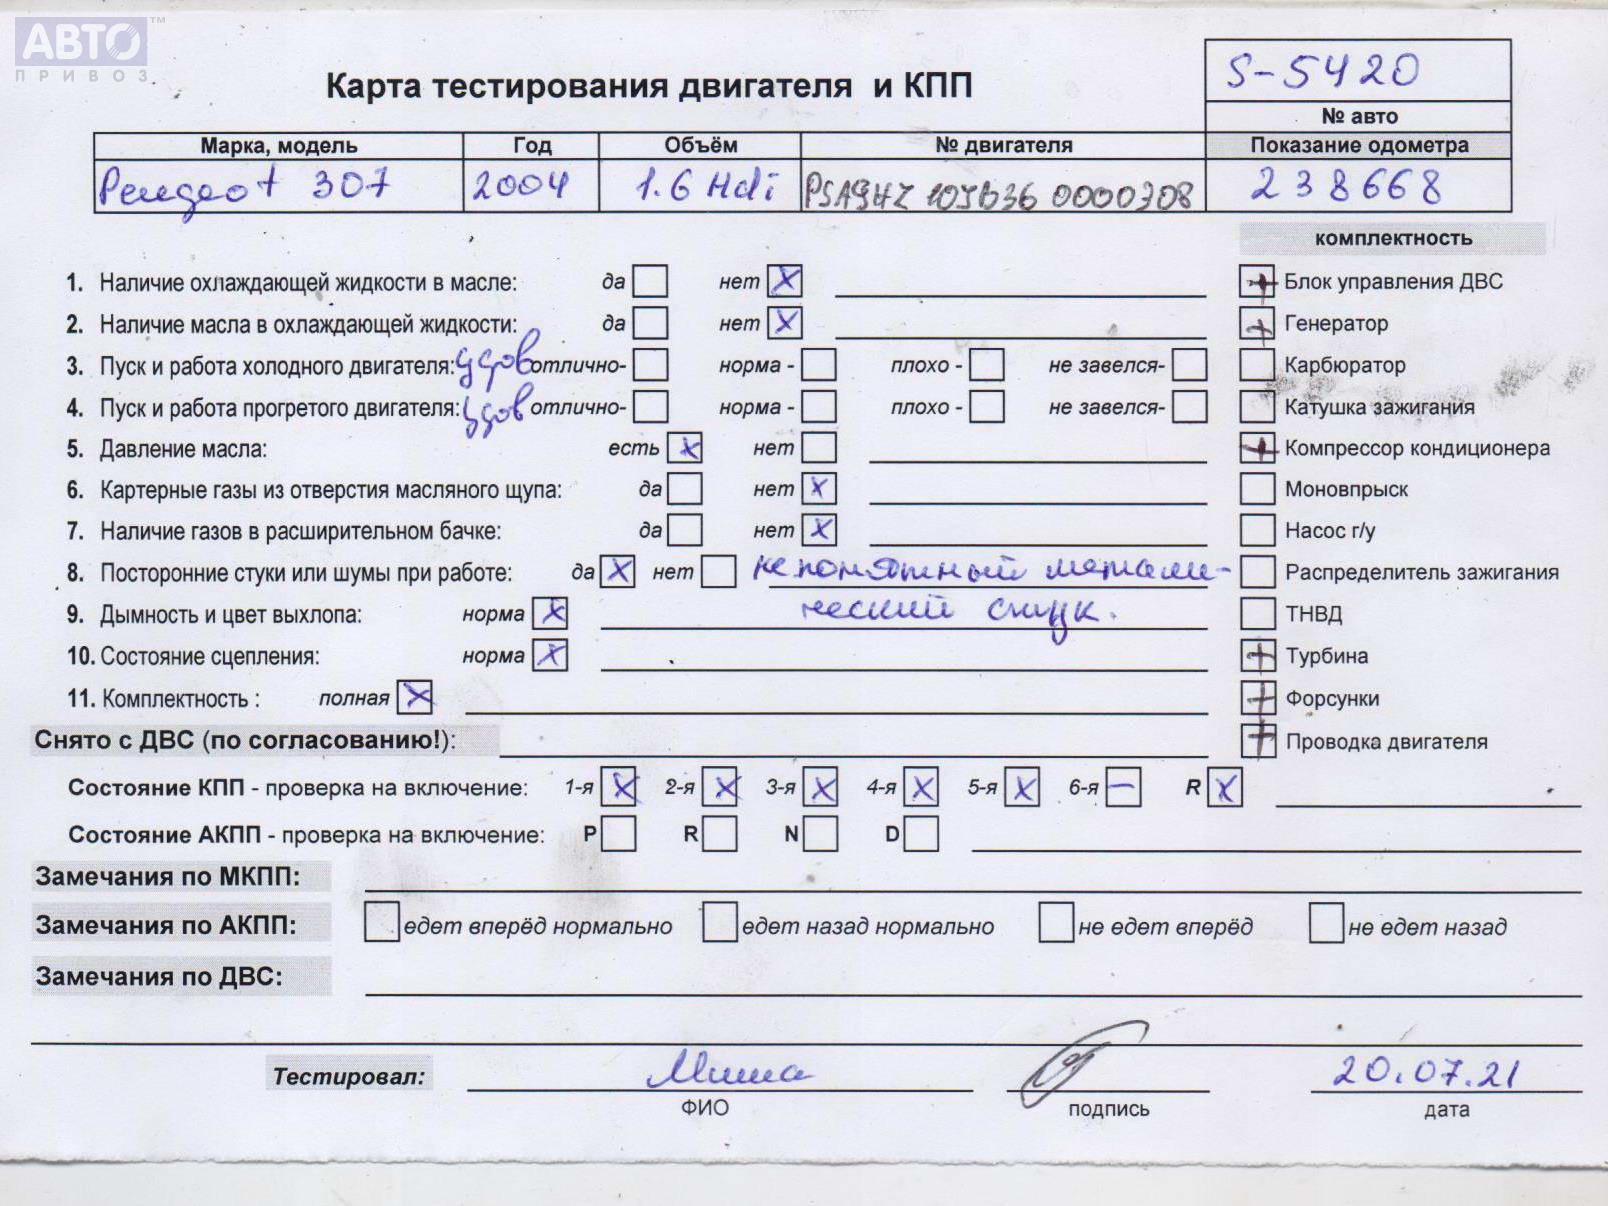 АВТО™
ПРИВОЗ
S-5420
Карта тестирования двигателя и КПП
№ авто
Марка, модель Год Объём № двигателя Показание одометра
Peugeot 307 2004 1.6 Hdi 238668
комплектность
1. Наличие охлаждающей жидкости в масле: да нет X Блок управления ДВС
2. Наличие масла в охлаждающей жидкости: да нет X Генератор
3. Пуск и работа холодного двигателя: удов отлично- норма - плохо - не завелся- Карбюратор
4. Пуск и работа прогретого двигателя: удов отлично- норма - плохо - не завелся- Катушка зажигания
5. Давление масла: есть X нет Компрессор кондиционера
6. Картерные газы из отверстия масляного щупа: да нет X Моновпрыск
7. Наличие газов в расширительном бачке: да нет X Насос г/у
8. Посторонние стуки или шумы при работе: да X нет непонятный металли- Распределитель зажигания
9. Дымность и цвет выхлопа: норма X ческий стук. ТНВД
10. Состояние сцепления: норма X Турбина
11. Комплектность : полная X Форсунки
Снято с ДВС (по согласованию!): Проводка двигателя
Состояние КПП - проверка на включение: 1-я X 2-я X 3-я X 4-я X 5-я X 6-я — R X
Состояние АКПП - проверка на включение: P R N D
Замечания по МКПП:
Замечания по АКПП: едет вперёд нормально едет назад нормально не едет вперёд не едет назад
Замечания по ДВС:
Тестировал: Миша 20.07.21
ФИО подпись дата